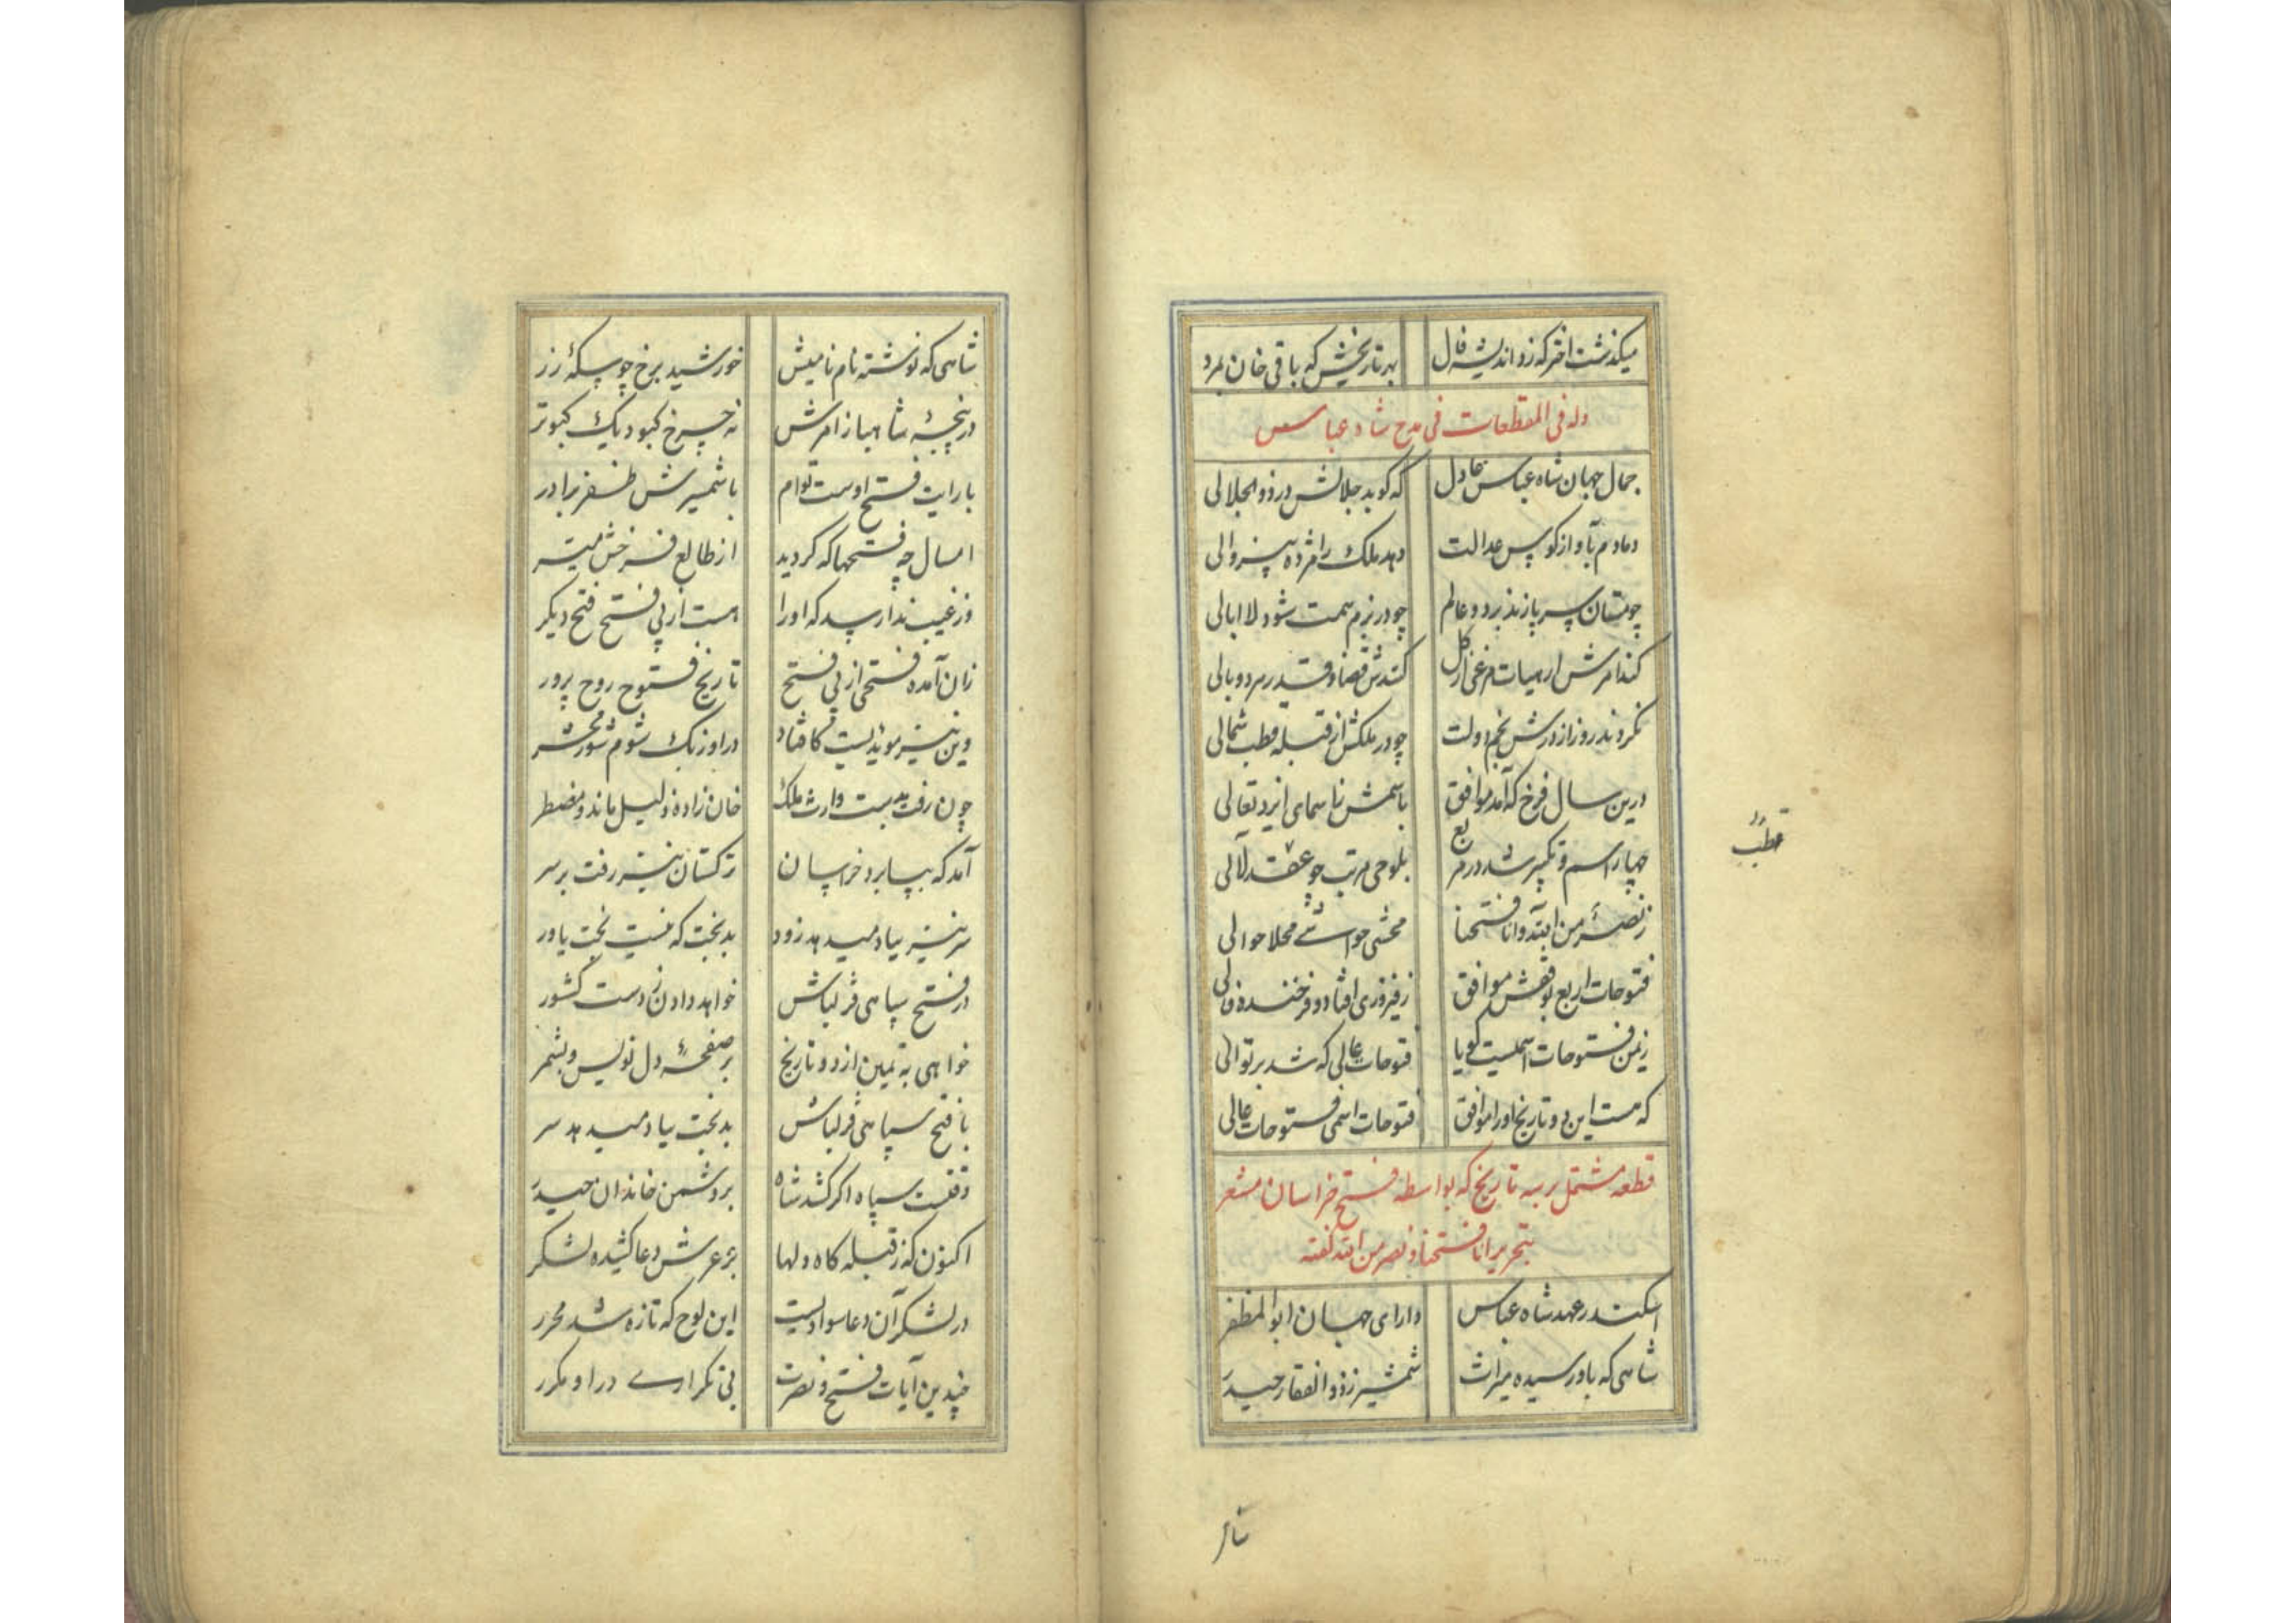 میکذشت اختر که زو اندیشه فال بهر تاریخش که باقی خان بمرد
وله فی المقطعات فی مدح شاه عباس
جمال جهان شاه عباس عادل که کوید جلالش در ذوالجلالی
دمادم بآواز کوس عدالت دهد ملک را مژده بیزوالی
چو مستان سر پا زند بر دو عالم چو در بزم همت شود لاابالی
کند امرش ار هیات مرغی از کل کندش قضا و قدر مرد و بالی
نکردند روز از درش نجم دولت چو در ملکش از قبله قطب شمالی
درین سال فرخ که آمد موافق باسمش ز اسمای ایزد تعالی
چهار اسم و تکسیر شد در مربع بلوحی مرتب چو عقد لآلی
قطب
ز نصر من الله و انا فتحنا محشی حواشی محلا حوالی
فتوحات اربع بوفقش موافق ز فیروزی افتاد و فرخنده فالی
ز یمن فتوحات اسمیست کویا فتوحات عالی که شد بر توالی
که هست این دو تاریخ او را موافق فتوحات اسمی فتوحات عالی
قطعه مشتمل بر سه تاریخ که بواسطه فتح خراسان مشعر
بتحریر انا فتحنا و نصر من الله کفته
اسکندر عهد شاه عباس دارای جهان ابوالمظفر
شاهی که باو رسیده میراث شمشیر ز ذوالفقار حیدر
شاهی که نوشته نام نامیش خورشید برخ چو سکهٔ زر
در پنجهٔ شاهباز امرش نه چرخ کبود یک کبوتر
با رایت فتح اوست توام با شمشیرش ظفر برادر
امسال چه فتحها که کردید از طالع فرخش میسر
وز غیب ندا رسد که او را هست از پی فتح فتح دیکر
زان آمده فتحی از پی فتح تاریخ فتوح روح پرور
وین نیز مویدیست کافتاد در اوزبک شوم شور محشر
چون رفت بدست وارث ملک خان زاده ذلیل ماند و مضطر
آمد که بیابد خراسان ترکستان نیز رفت بر سر
سر نیز بباد میدهد زود بدبخت که نیست بخت یاور
در فتح سپاهی قزلباش خواهد دادن ز دست کشور
خواهی به یمین ازو دو تاریخ بر صفحهٔ دل نویس و بشمر
با فتح سپاهی قزلباش بدبخت بباد میدهد سر
وقتست سپاه اکر کشد شاه بر دشمن خاندان حیدر
اکنون که ز قبله کاه دلها بر عرش دعا کشیده لشکر
در لشکر آن دعا سوادیست این لوح که تازه شد محرر
چندین آیات فتح و نصرت بی تکراری در او مکرر